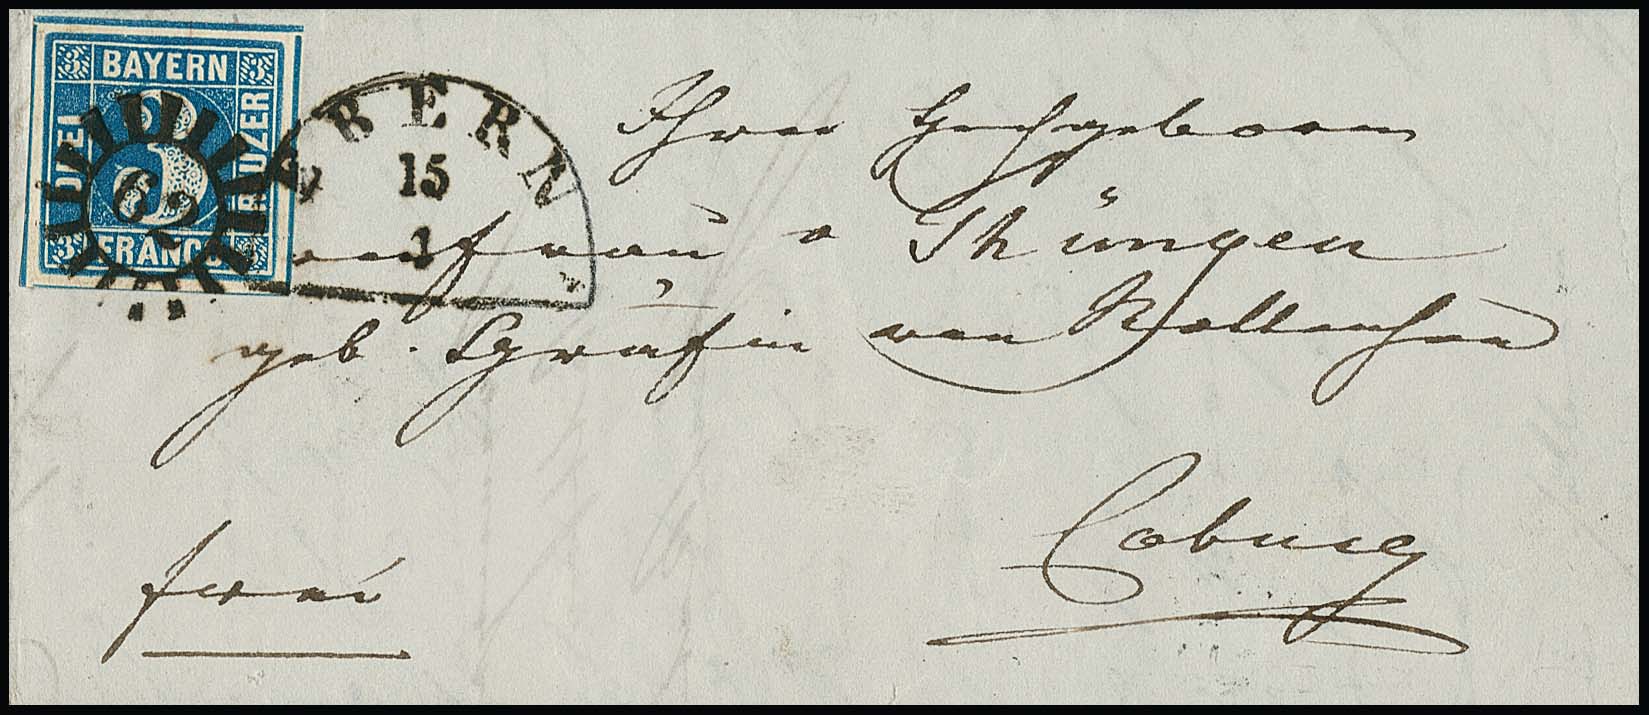 BAYERN
DREI
KREUZER
FRANCO
3 3 3
62
EBERN
15
1
Ihrer Hochgeboren
Freifrau v Thüngen
geb. Gräfin von
Coburg
frei